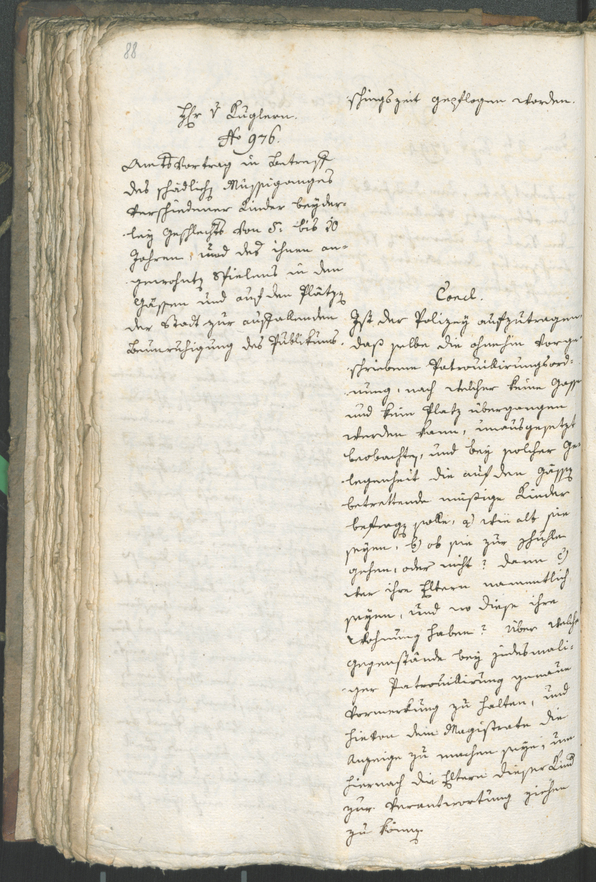 88
Hr v Kuglern.
No 976.
Amtsvortrag in Betreff
des schädlich Müssiganges
verschiedener Kinder beyder-
ley Geschlechts von 5. bis 10
Jahren, und des ihnen an-
gewohnt Spielens in den
Gässen und auf den Plätz
der Stadt zur auffallenden
Beunruhigung des Publikums.
schingszeit gepflogen worden.
Concl.
Ist der Polizey aufzutragen
daß selbe die ohnehin vorge-
schriebene Patrouillirungsord-
nung, nach welcher keine Gasse
und kein Platz übergangen
werden kann, unausgesetzt
beobachte, und bey solcher Ge-
legenheit die auf den Gässen
betrettende müßige Kinder
befragen solle, a) wie alt sie
seyen, b) ob sie zur Schulle
gehen, oder nicht? dann c)
wer ihre Eltern namentlich
seyen, und wo diese ihre
Wohnung haben? Über welche
Gegenstände bey jedesmali-
ger Patrouillirung genaue
Vormerkung zu halten, und
hievon dem Magistrate die
Anzeige zu machen seye, um
hiernach die Eltern dieser Kind
zur Verantwortung ziehen
zu können.